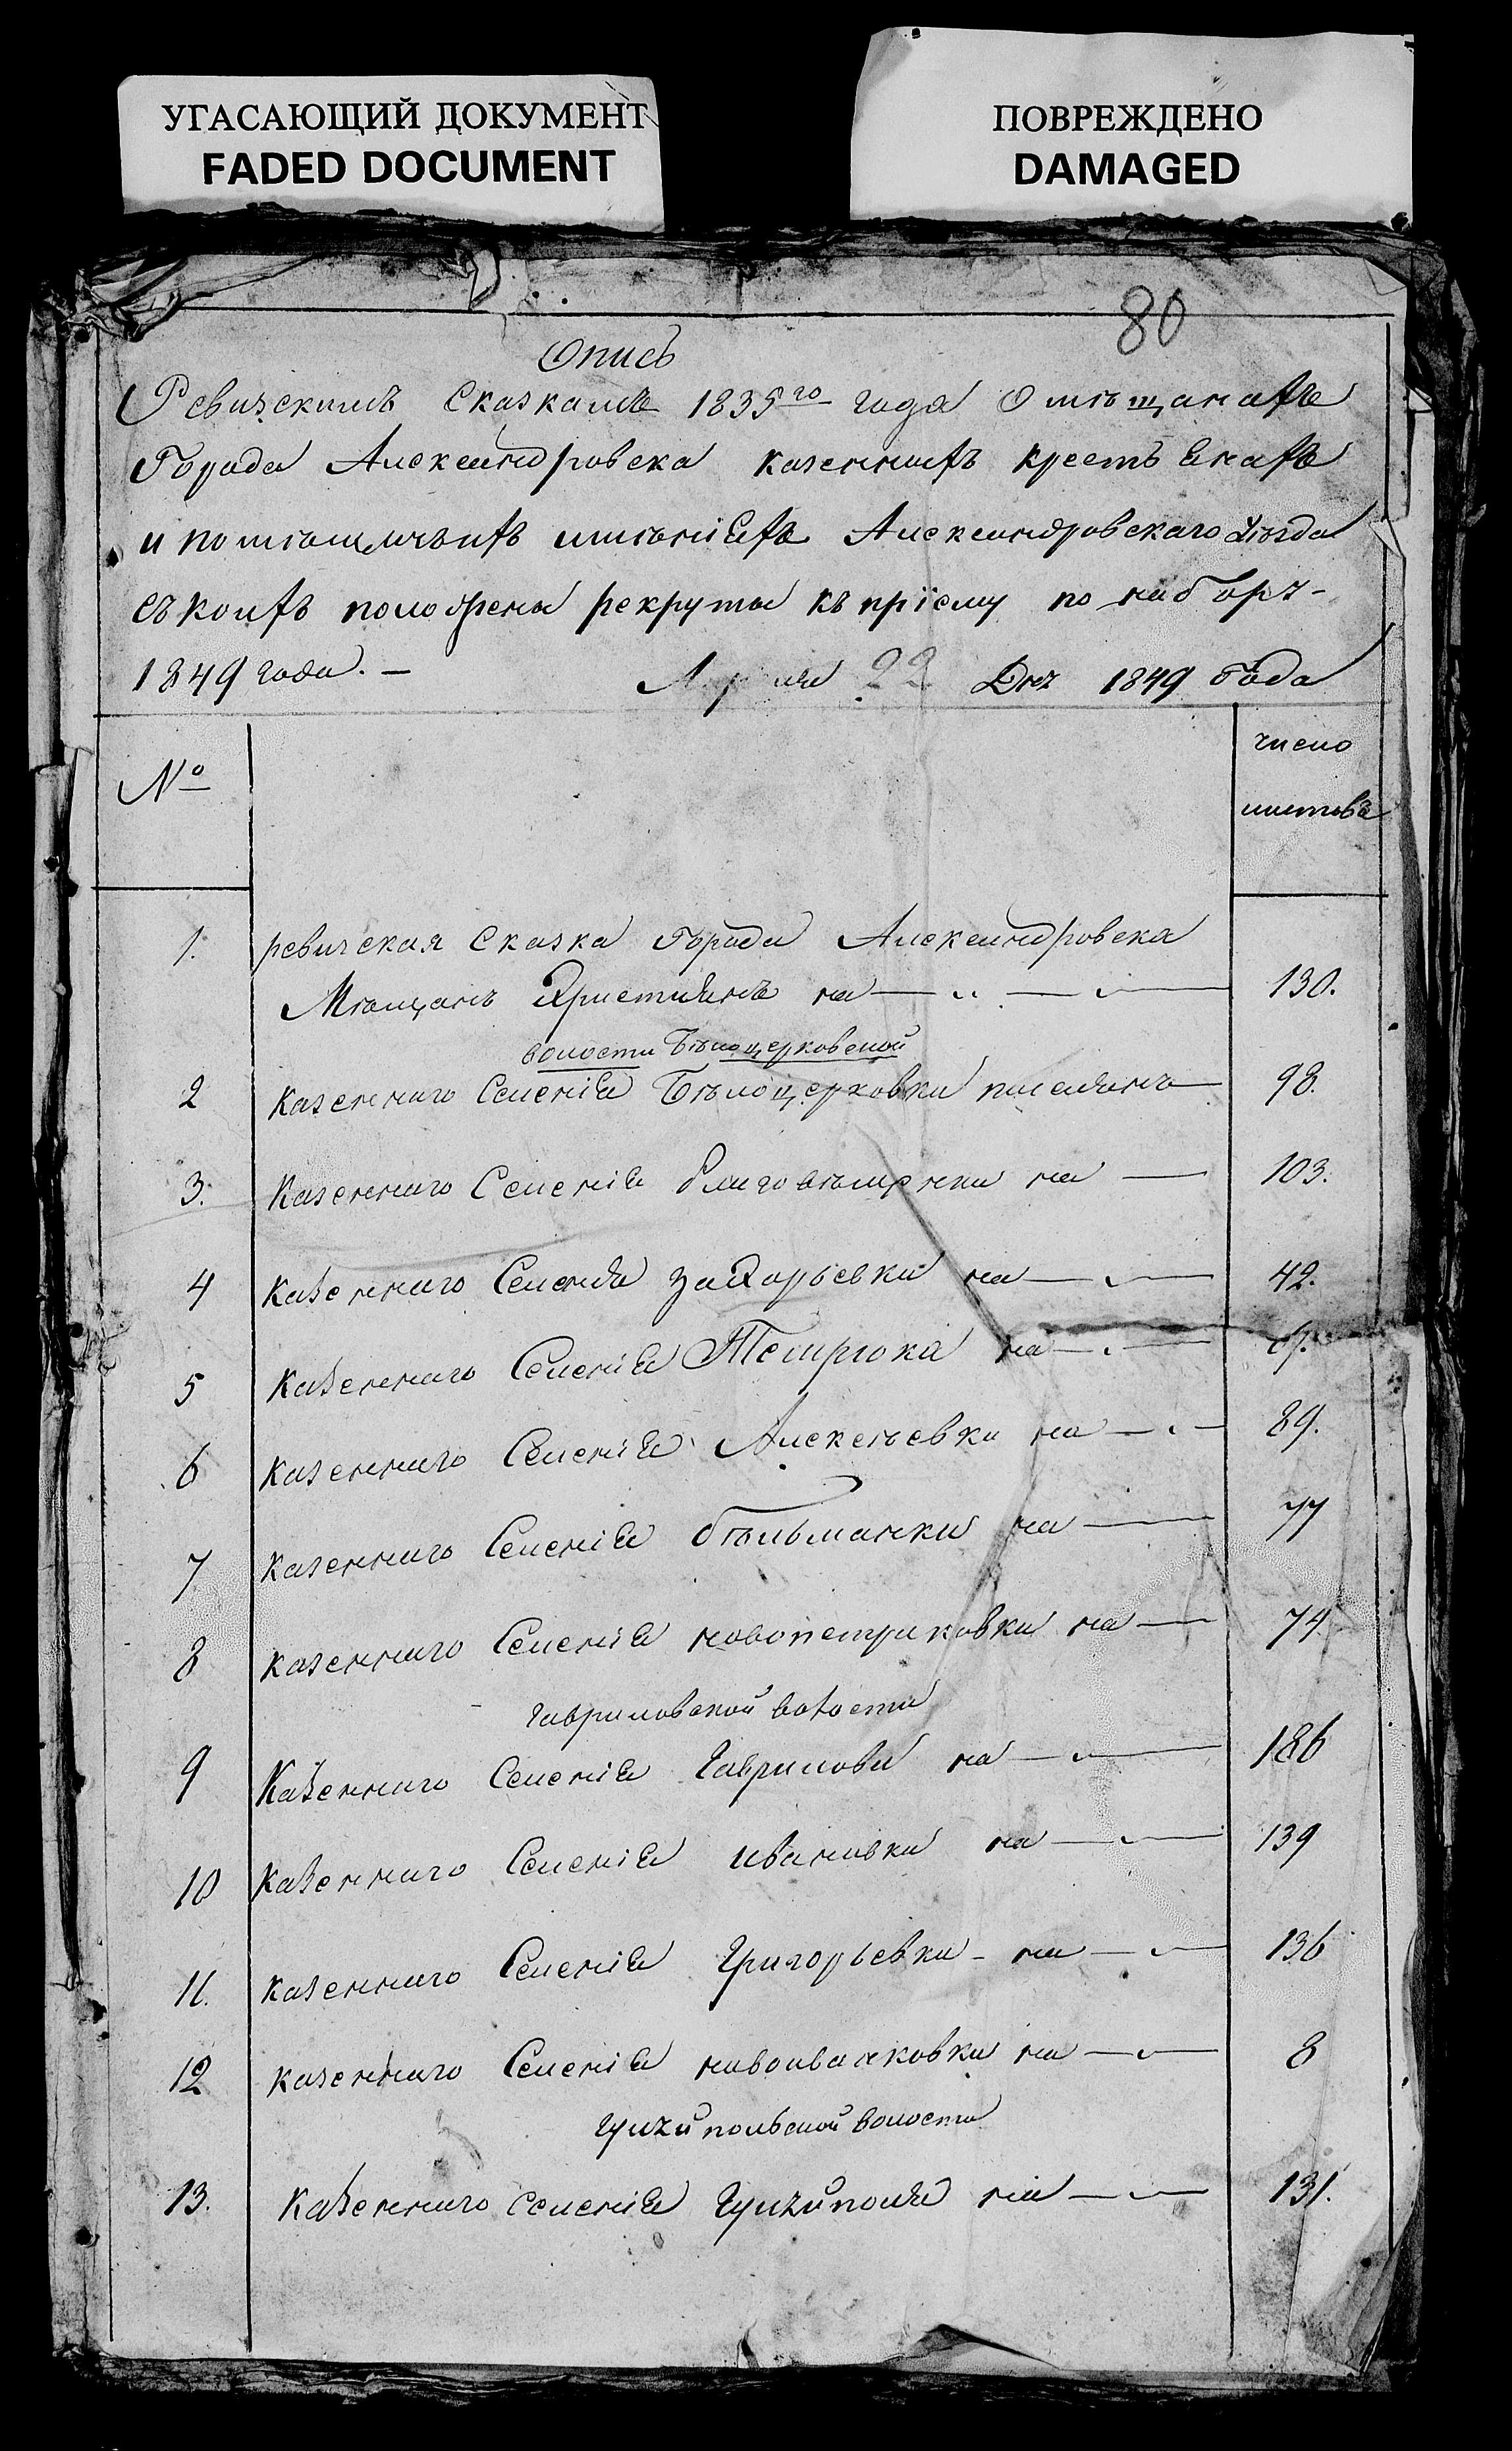 УГАСАЮЩИЙ ДОКУМЕНТ
FADED DOCUMENT
ПОВРЕЖДЕНО
DAMAGED
80
Опись
Ревизскимъ Сказкамъ 1835го года О мѣщанахъ
Города Александровска казенныхъ крестьянахъ
и помѣщичьихъ имѣніяхъ Александровскаго Уѣзда
съ коихъ рекруты къ пріему по наборѣ
1849 года. — 22 Дня 1849 Года
№
число
листовъ
1. ревизская Сказка Города Александровска
Мѣщанъ Христіянъ на — 130.
волости Бѣлоцерковской
2 казеннаго Селенія Бѣлоцерковки — 98.
3. Казеннаго Селенія на — 103.
4 казеннаго Селенія Захарьевки на — 42.
5 казеннаго Селенія Темрюка на —
6 казеннаго Селенія Алексѣевки на — 89.
7 казеннаго Селенія бѣльманки на — 77
8 казеннаго Селенія новопетриковки на — 74.
гавриловской волости
9 Казеннаго Селенія Гаврилови на — 186
10 Казеннаго Селенія ивановки на — 139
11. казеннаго Селенія Григорьевки - на — 136
12 казеннаго Селенія новоивановки на — 8
гуляйпольской волости
13. Казеннаго селенія гуляйполя на — 131.